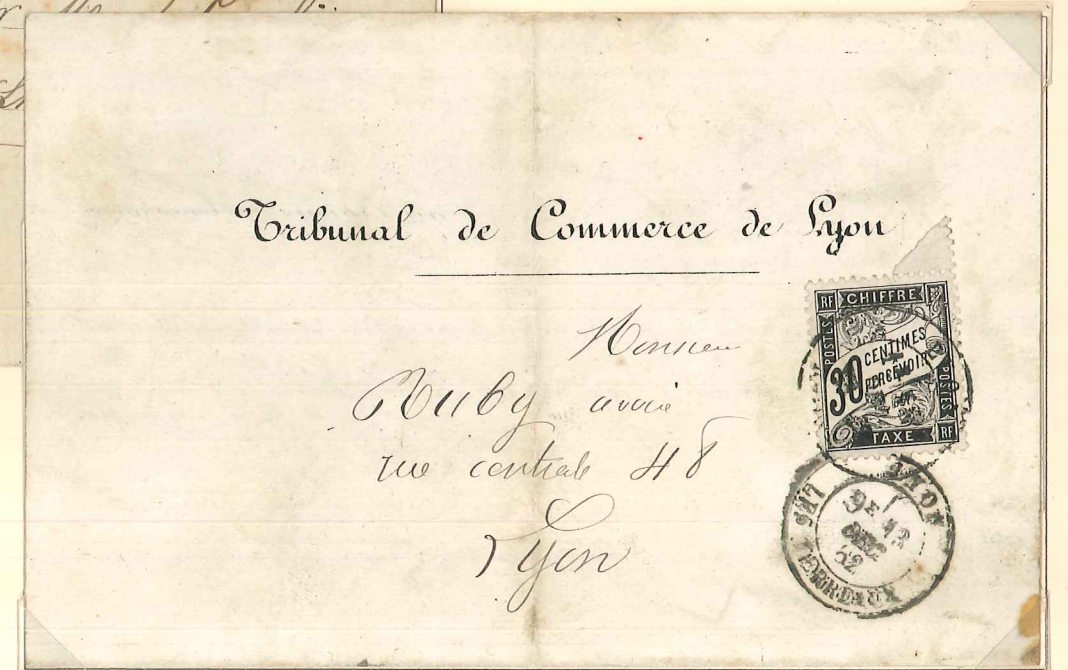 Tribunal de Commerce de Lyon
Monsieur
Ruby avoué
rue centrale 48
Lyon
RF CHIFFRE
POSTES
30 CENTIMES
À PERCEVOIR
POSTES
TAXE RF
LYON
9E
DEC
LES TERREAUX